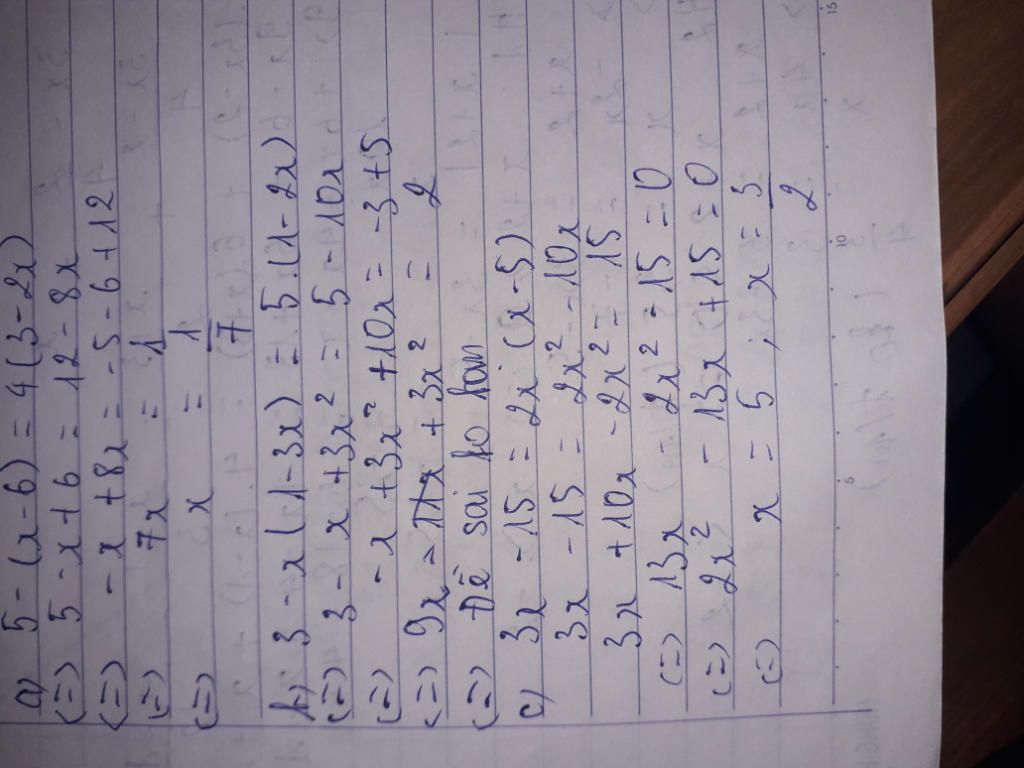 a) 5 - (x - 6) = 4 (3 - 2x)
(=) 5 - x + 6 = 12 - 8x
(=) - x + 8x = -5 - 6 + 12
(=) 7x = 1
(=) x = 1/7
b) 3 - x (1 - 3x) = 5.(1 - 2x)
(=) 3 - x + 3x² = 5 - 10x
(=) - x + 3x² + 10x = -3 + 5
(=) 9x + 3x² = 2
(=) Đề sai ko
c) 3x - 15 = 2x (x - 5)
3x - 15 = 2x² - 10x
3x + 10x - 2x² = 15
(=) 13x - 2x² - 15 = 0
(=) 2x² - 13x + 15 = 0
(=) x = 5 ; x = 3/2
5 10 15